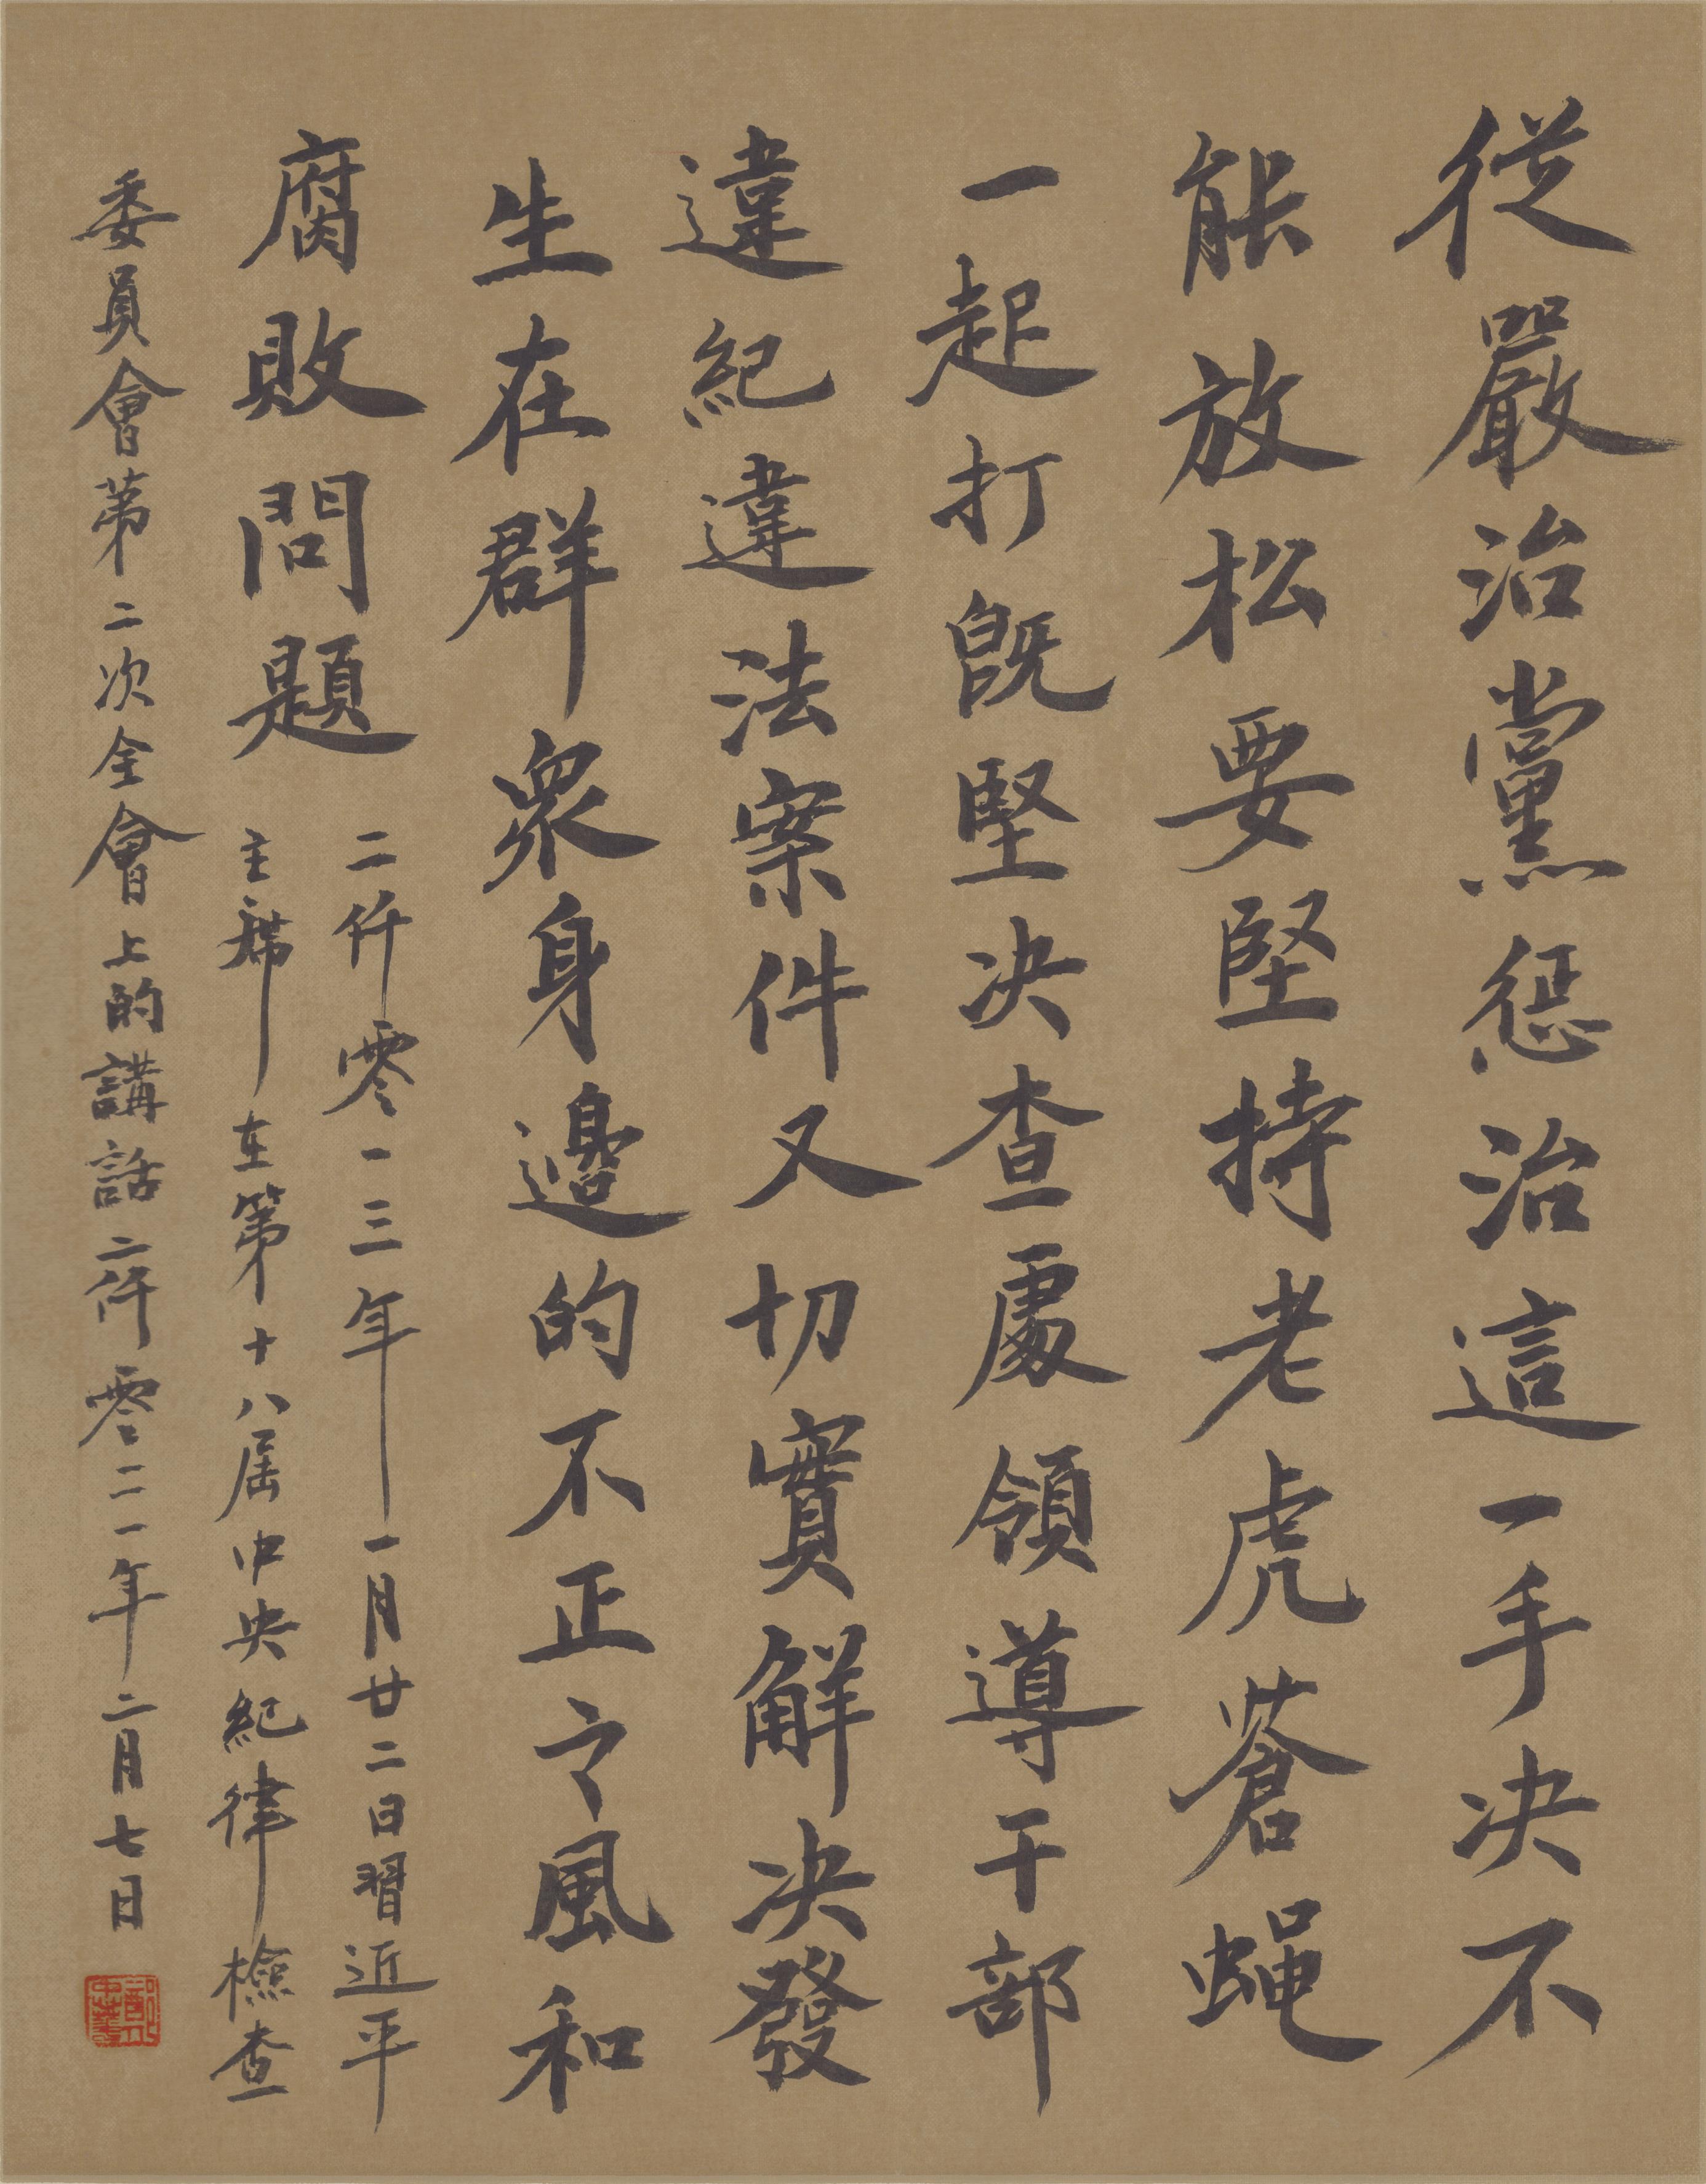 從嚴治黨惩治這一手决不
能放松要堅持老虎蒼蝇
一起打既堅决查處領導干部
違紀違法案件又切實解决發
生在群衆身邊的不正之風和
腐敗問題
二仟零一三年一月廿二日習近平
主席在第十八届中央紀律檢查
委員會第二次全會上的講話二仟零二一年二月七日